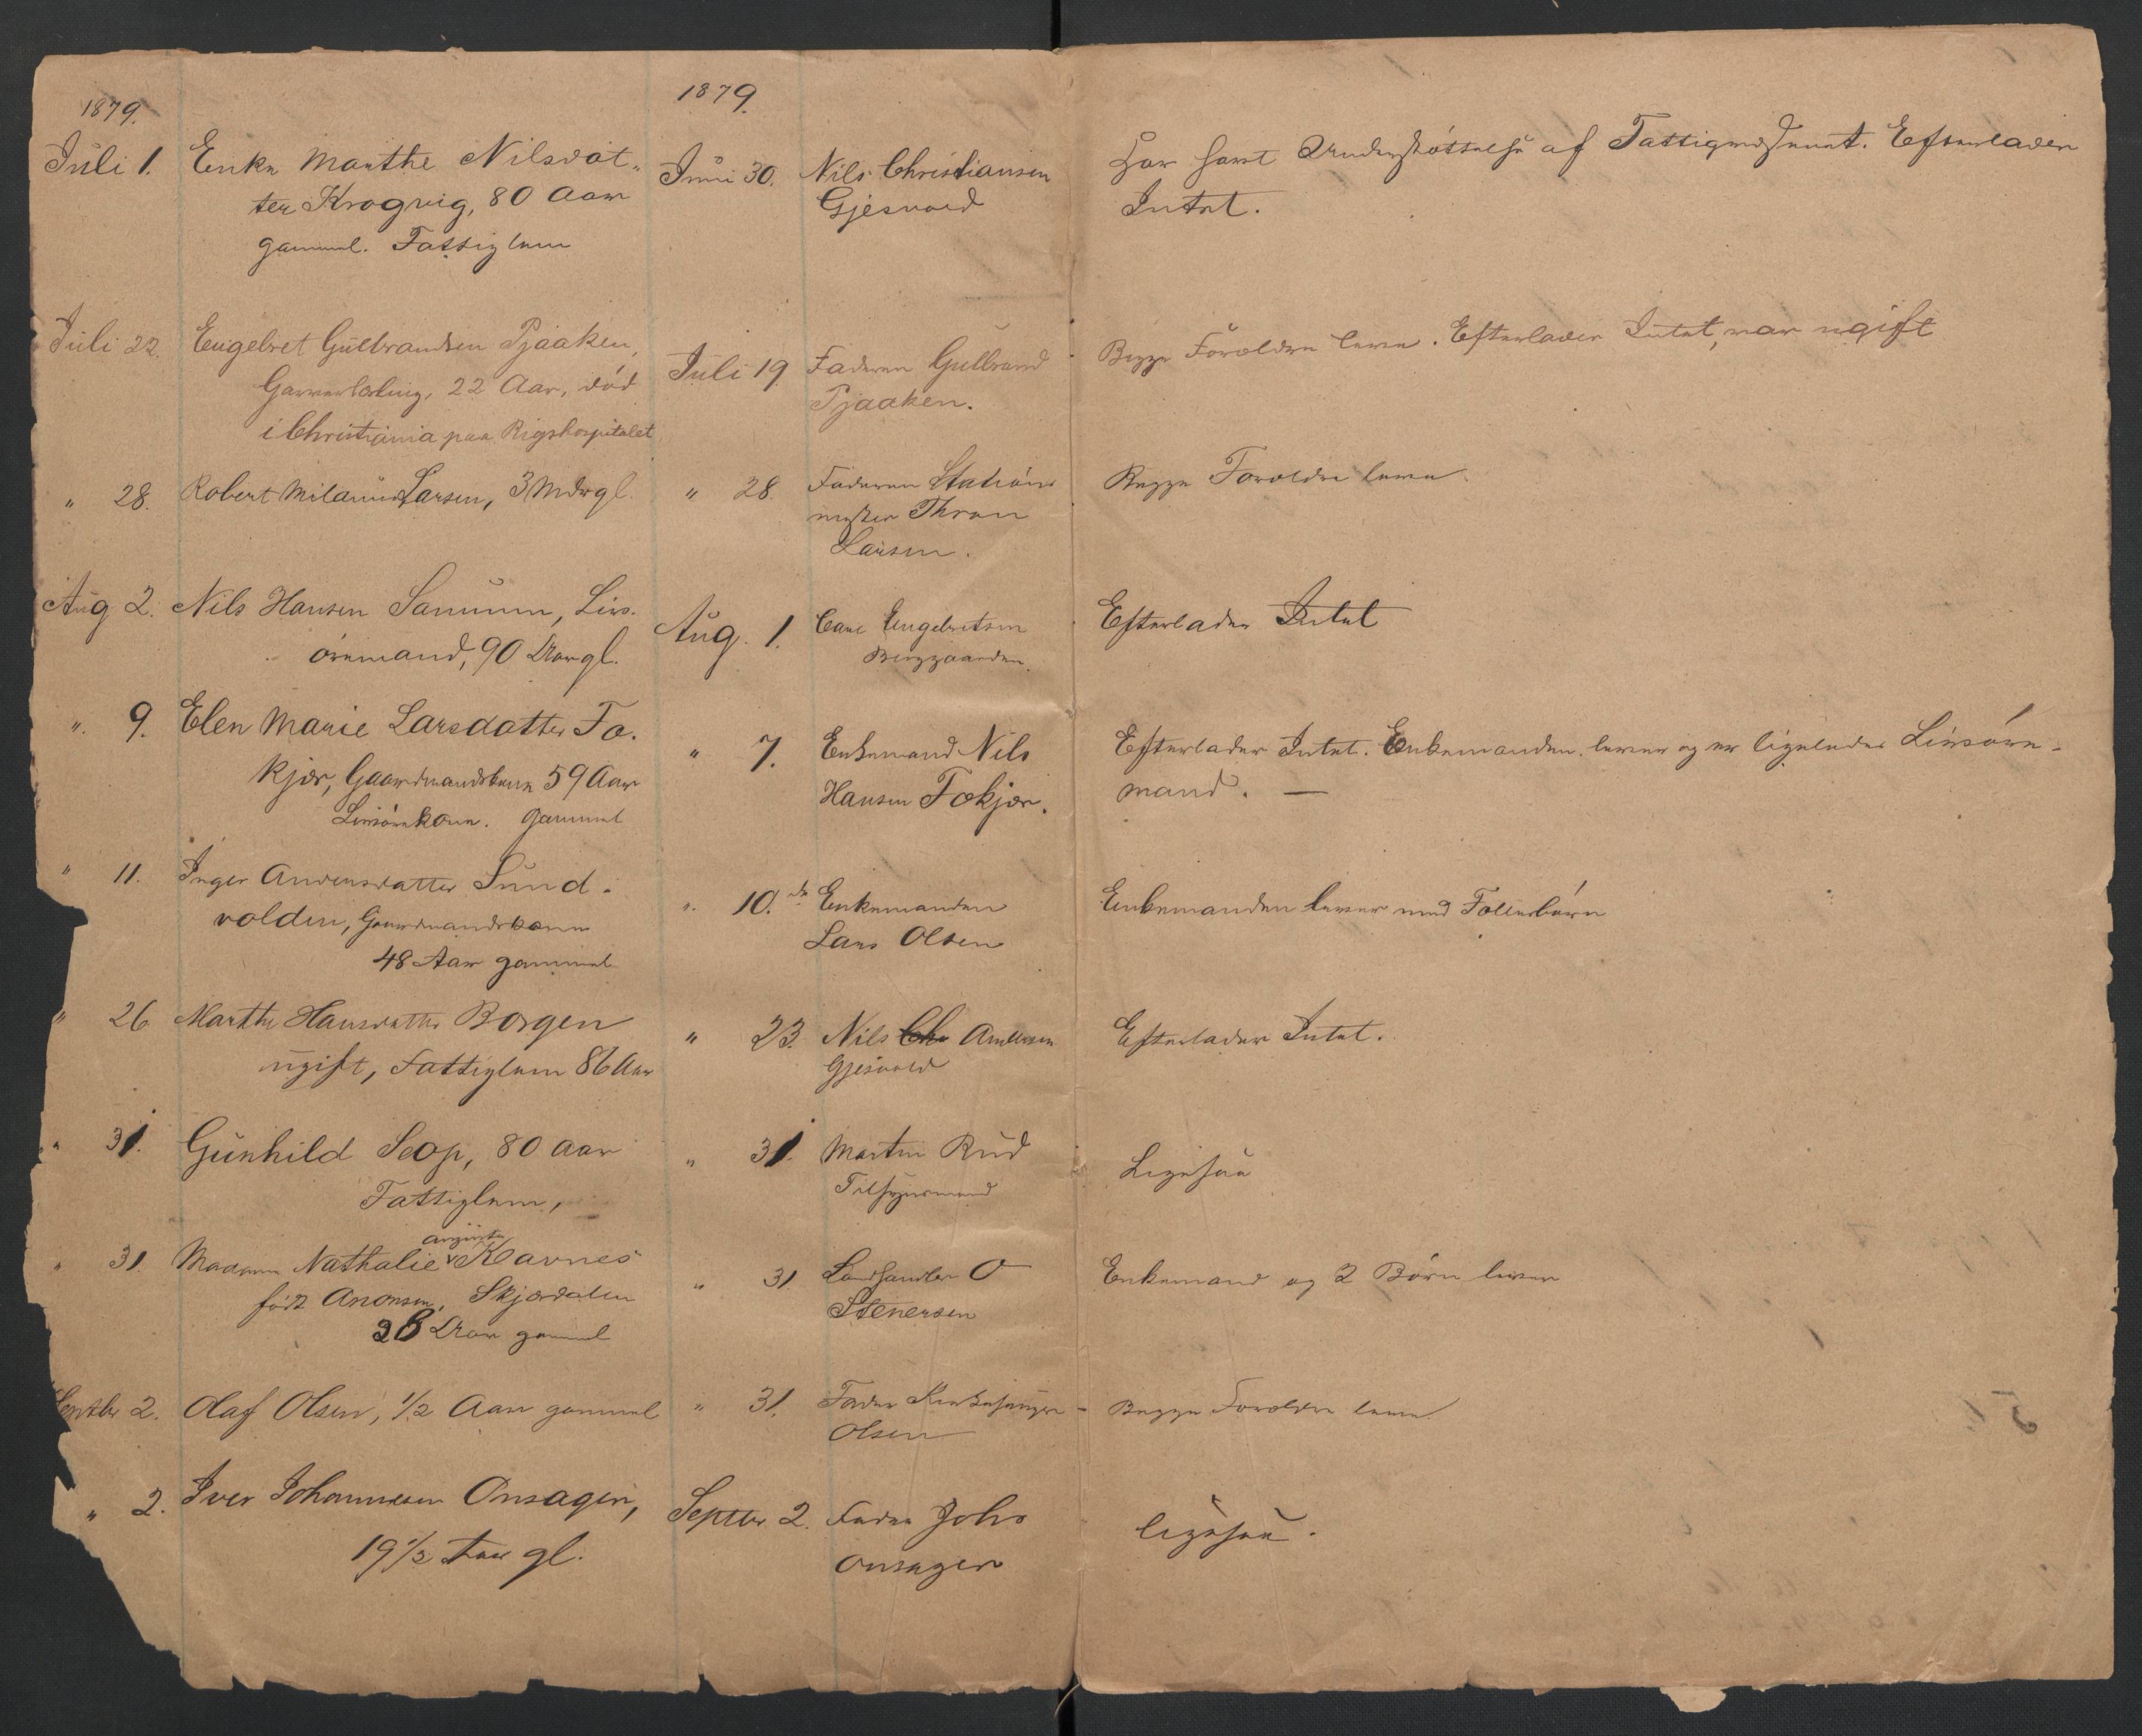 1879.
1879.
Juli 1. Enke Marthe Nilsdat„
ter Krogvig, 80 Aar
gammel. Fattiglem
Juni 30. Nils Christiansen
Gjesvold
Har havt Understøttelse af Fattigvæsenet. Efterlader
Intet.
Juli 22. Engebret Gulbrandsen Pjaaken,
Garverlærling, 22 Aar, død
i Christiania paa Rigshospitalet
Juli 19 Faderen Gulbrand
Pjaaken.
Begge Forældre leve. Efterlader Intet, var ugift
„ 28. Robert Larsen, 3 Mdr gl.
„ 28. Faderen Stations
mester Thron
Larsen.
Begge Forældre leve.
Aug 2. Nils Hansen Samuen, Livs-
øremand, 90 Aar gl.
Aug. 1. Engebretsen
Byggaarden.
Efterlader Intet
„ 9. Elen Marie Larsdatter Fo-
kjær, Gaardmandskone 59 Aar
Livsørekone. gammel
„ 7. Enkemand Nils
Hansen Fokjær.
Efterlader Intet. Enkemanden lever og er ligeledes Livsøre-
mand. —
„ 11. Inger Andersdatter Sund-
volden, Gaardmandskone
48 Aar gammel
„ 10. de Enkemanden
Lars Olsen
Enkemanden lever med Fællesbørn
„ 26 Marthe Hansdatter Borgen
ugift, Fattiglem 86 Aar
„ 23. Nils Chr Andersen
Gjesvold
Efterlader Intet.
„ 31. Gunhild Seop, 80 Aar
Fattiglem,
„ 31. Martin Rud
Tilsynsmand
Ligesaa
„ 31. Madame Nathalie Augusta Ravnes
født Anonsen, Skjærdalen
28 Aar gammel
„ 31 Landhandler O
Stenersen
Enkemand og 2 Børn lever
Septbr 2. Olaf Olsen, 1/2 Aar gammel
„ 31. Fader Kirkesanger
Olsen
Begge Forældre leve.
„ 2. Iver Johannesen Onsager,
19 1/2 Aar gl.
Septbr 2. Fader Johs
Onsager
ligesaa.